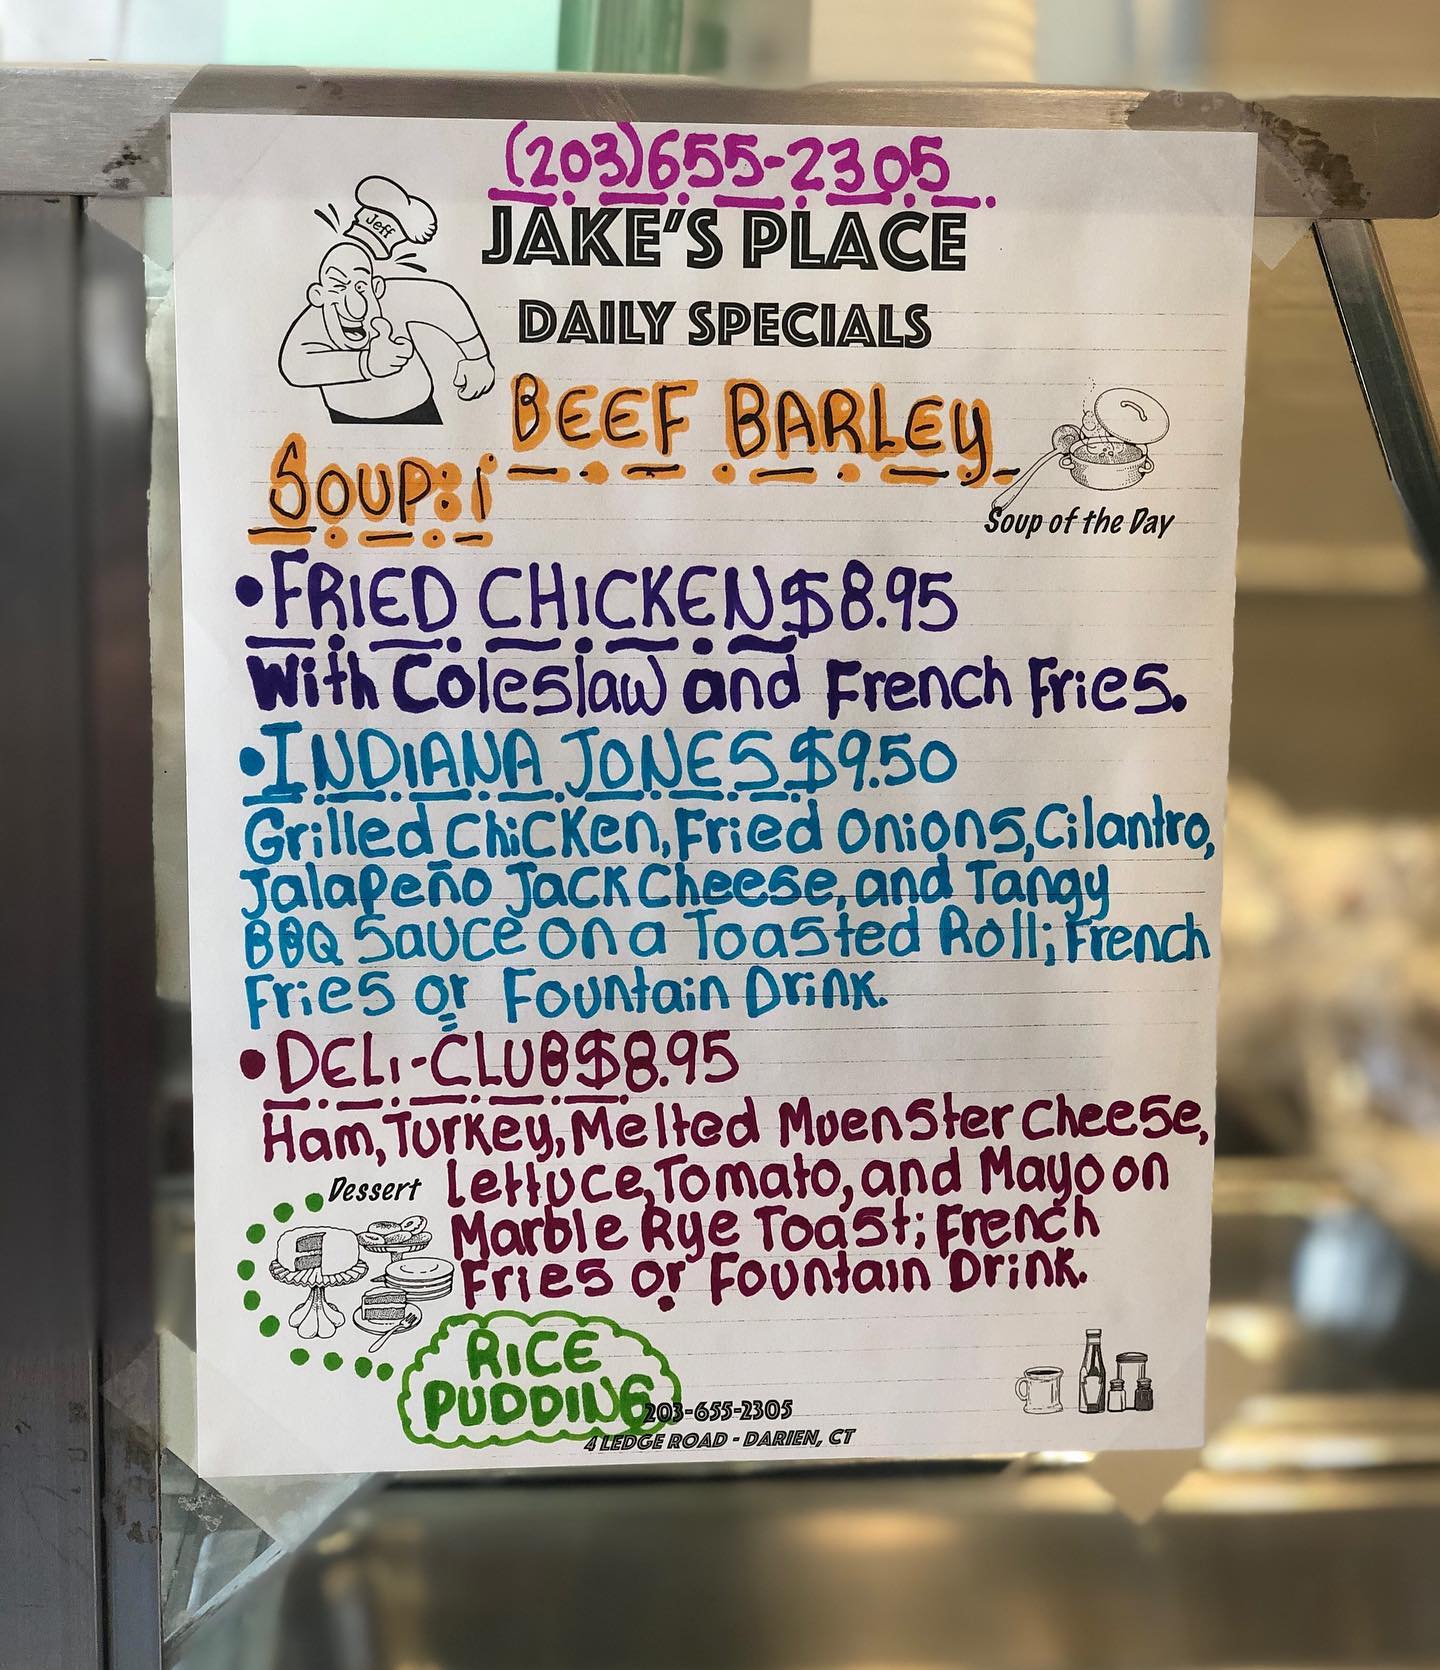 (203)655-2305
Jeff
JAKE'S PLACE
DAILY SPECIALS
BEEF BARLEY
SOUP:!
Soup of the Day
•FRIED CHICKEN $8.95
With Coleslaw and French Fries.
•INDIANA JONES $9.50
Grilled Chicken, Fried Onions, Cilantro,
Jalapeño Jack Cheese, and Tangy
BBQ Sauce on a Toasted Roll; French
Fries or Fountain Drink.
•DELI-CLUB $8.95
Ham, Turkey, Melted Muenster Cheese,
Lettuce, Tomato, and Mayo on
Marble Rye Toast; French
Fries or Fountain Drink.
Dessert
RICE
PUDDING
203-655-2305
4 LEDGE ROAD - DARIEN, CT